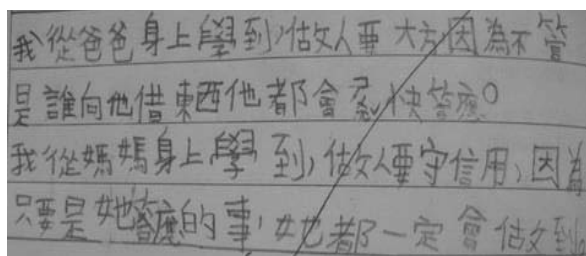 我從爸爸身上學到,做人要大方,因為不管
是誰向他借東西他都會爽快答應。
我從媽媽身上學到,做人要守信用,因為
只要是她答應的事,她都一定會做到。